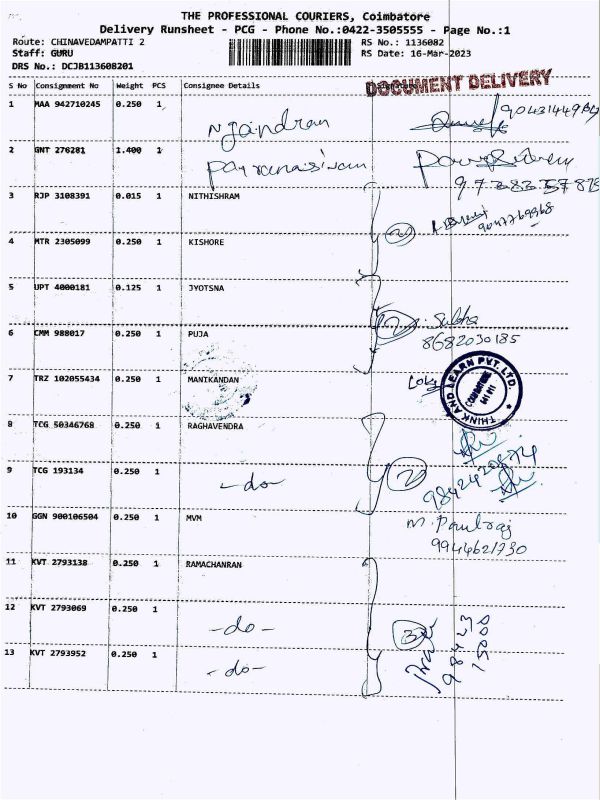 THE PROFESSIONAL COURIERS, Coimbatore
Delivery Runsheet - PCG - Phone No.:0422-3505555 - Page No.:1
Route: CHINAVEDAMPATTI 2 RS No.: 1136082
Staff: GURU RS Date: 16-Mar-2023
DRS No.: DCJB113608201
DOCUMENT DELIVERY
S No Consignment No Weight PCS Consignee Details
1 MAA 942710245 0.250 1
2 GNT 276281 1.400 1
3 RJP 3108391 0.015 1 NITHISHRAM
9047769968
4 MTR 2305099 0.250 1 KISHORE 2
5 UPT 4000181 0.125 1 JYOTSNA
6 CMM 988017 0.250 1 PUJA 2 Subha
8682030185
7 TRZ 102055434 0.250 1 MANIKANDAN
THINK AND LEARN PVT. LTD.
8 TCG 50346768 0.250 1 RAGHAVENDRA
9 TCG 193134 0.250 1 -do- 2
10 GGN 900106504 0.250 1 MVM M. Paulraj
9944621730
11 KVT 2793138 0.250 1 RAMACHANRAN
12 KVT 2793069 0.250 1 -do- 3
13 KVT 2793952 0.250 1 -do-
98423
15000